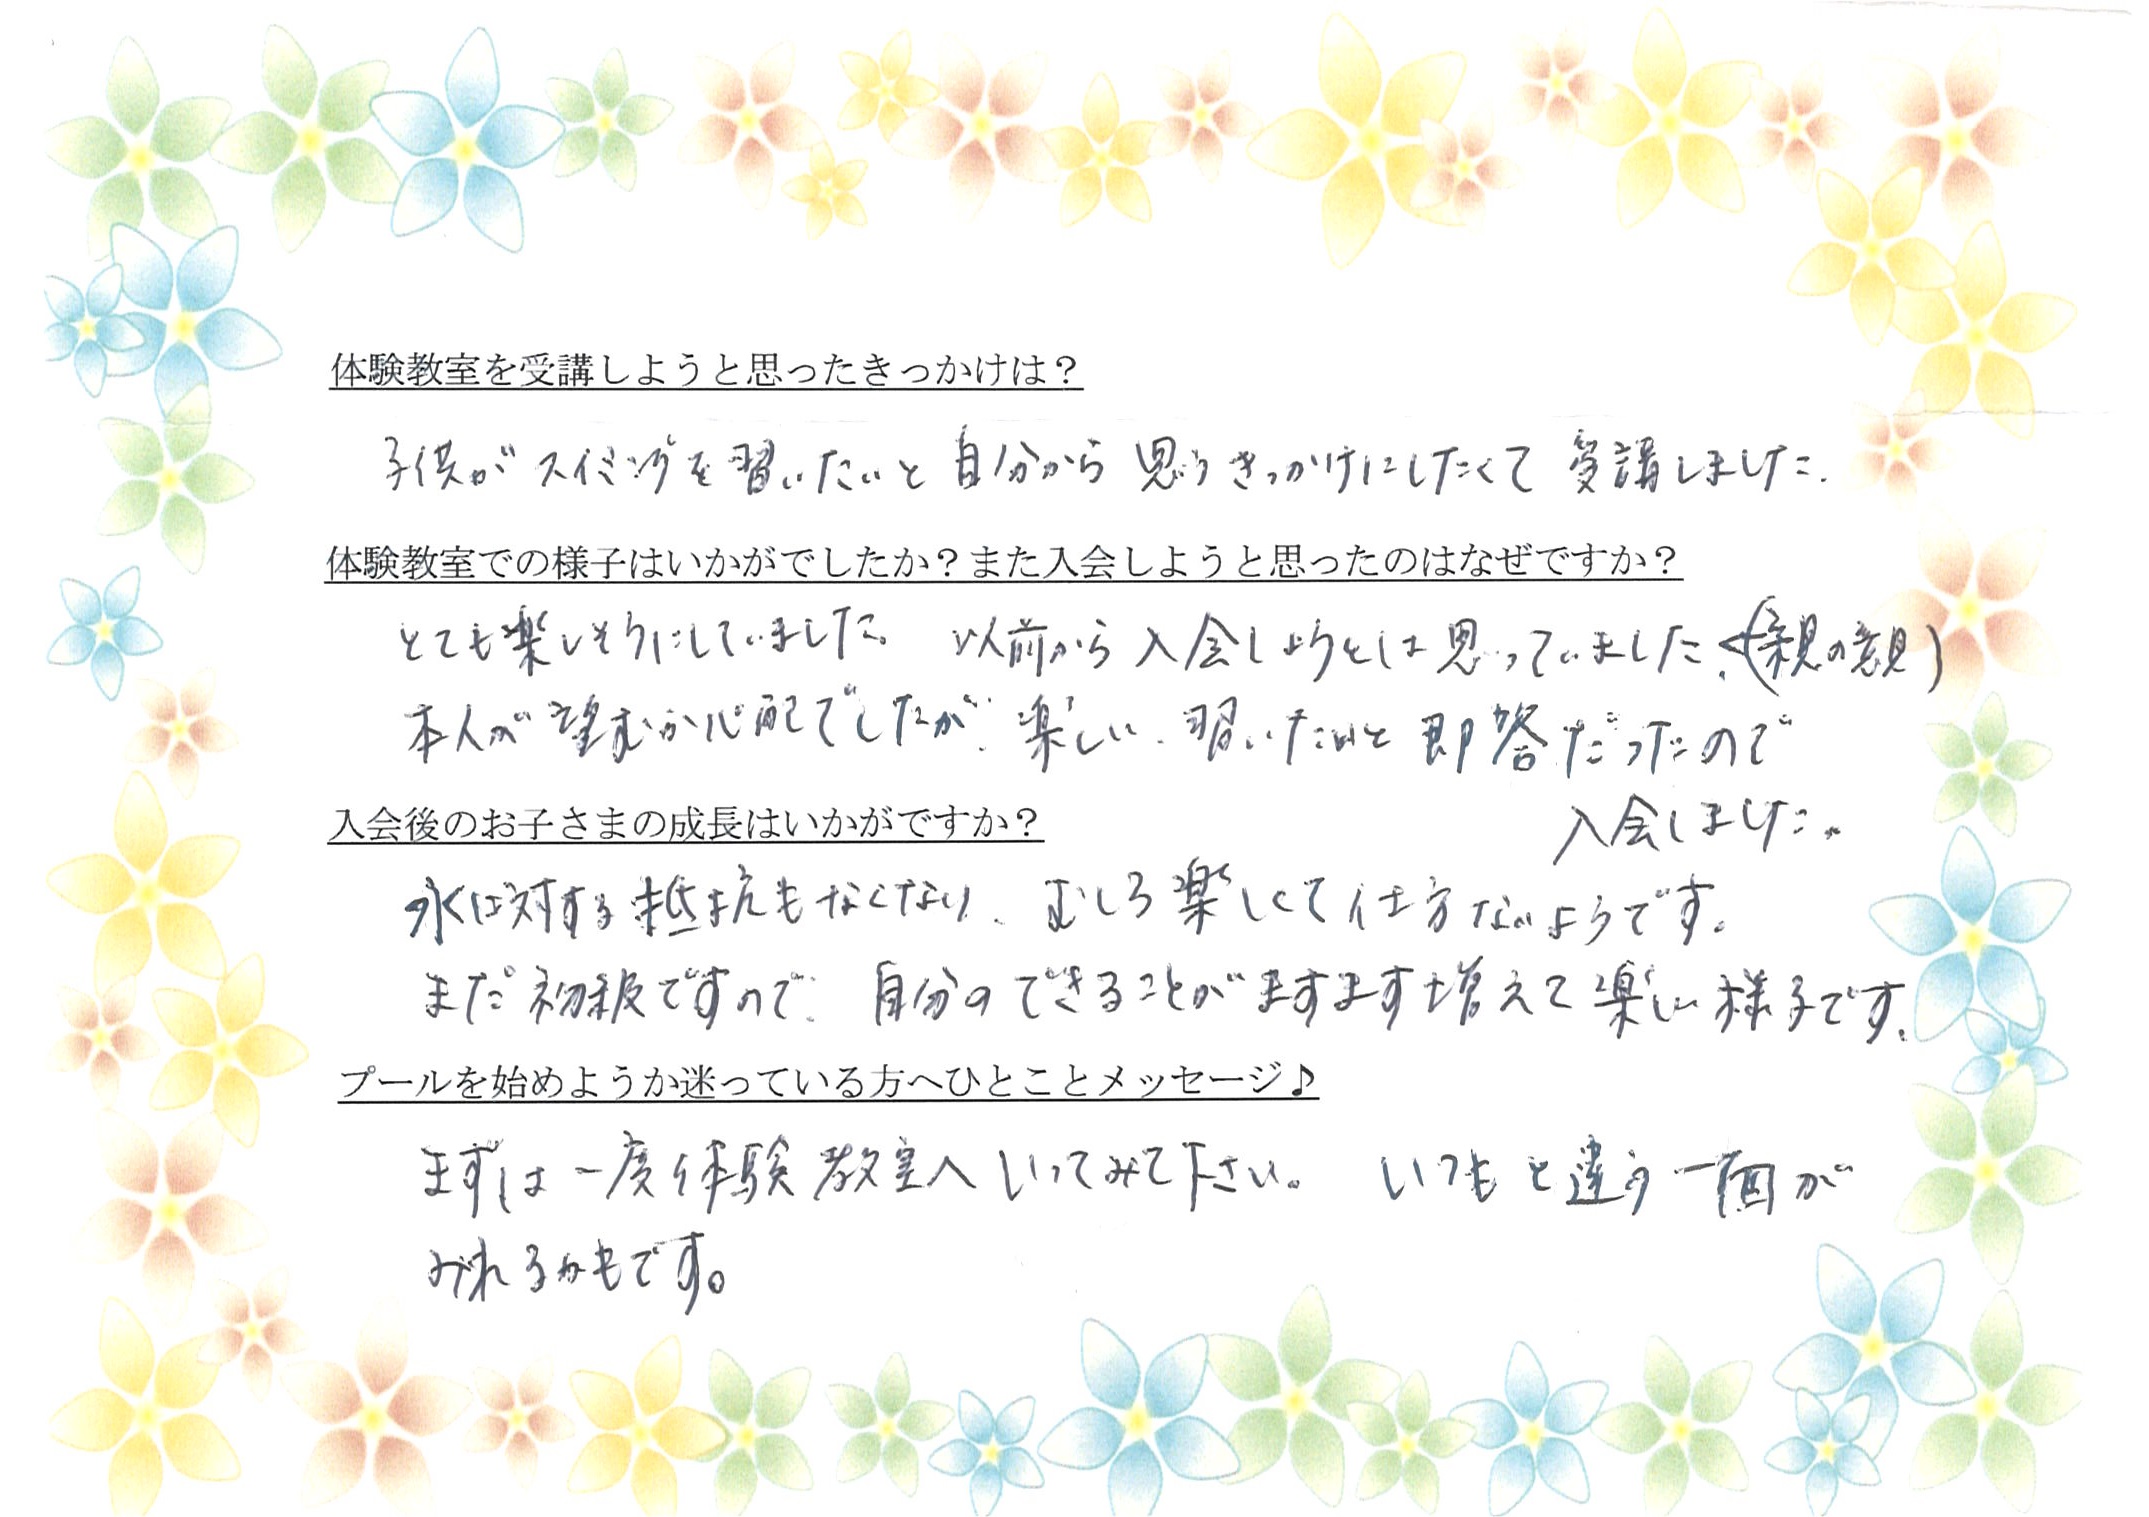 体験教室を受講しようと思ったきっかけは？
子供がスイミングを習いたいと自分から思うきっかけにしたくて受講しました.
体験教室での様子はいかがでしたか？また入会しようと思ったのはなぜですか？
とても楽しそうにしていました。以前から入会しようとは思っていました.(親の意見)
本人が望むか心配でしたが、楽しい、習いたいと即答だったので
入会しました。
入会後のお子さまの成長はいかがですか？
水に対する抵抗もなくなり、むしろ楽しくて仕方ないようです。
まだ初級ですので、自分のできることがますます増えて楽しい様子です.
プールを始めようか迷っている方へひとことメッセージ♪
まずは一度体験教室へいってみて下さい。いつもと違う一面が
みれるかもです。